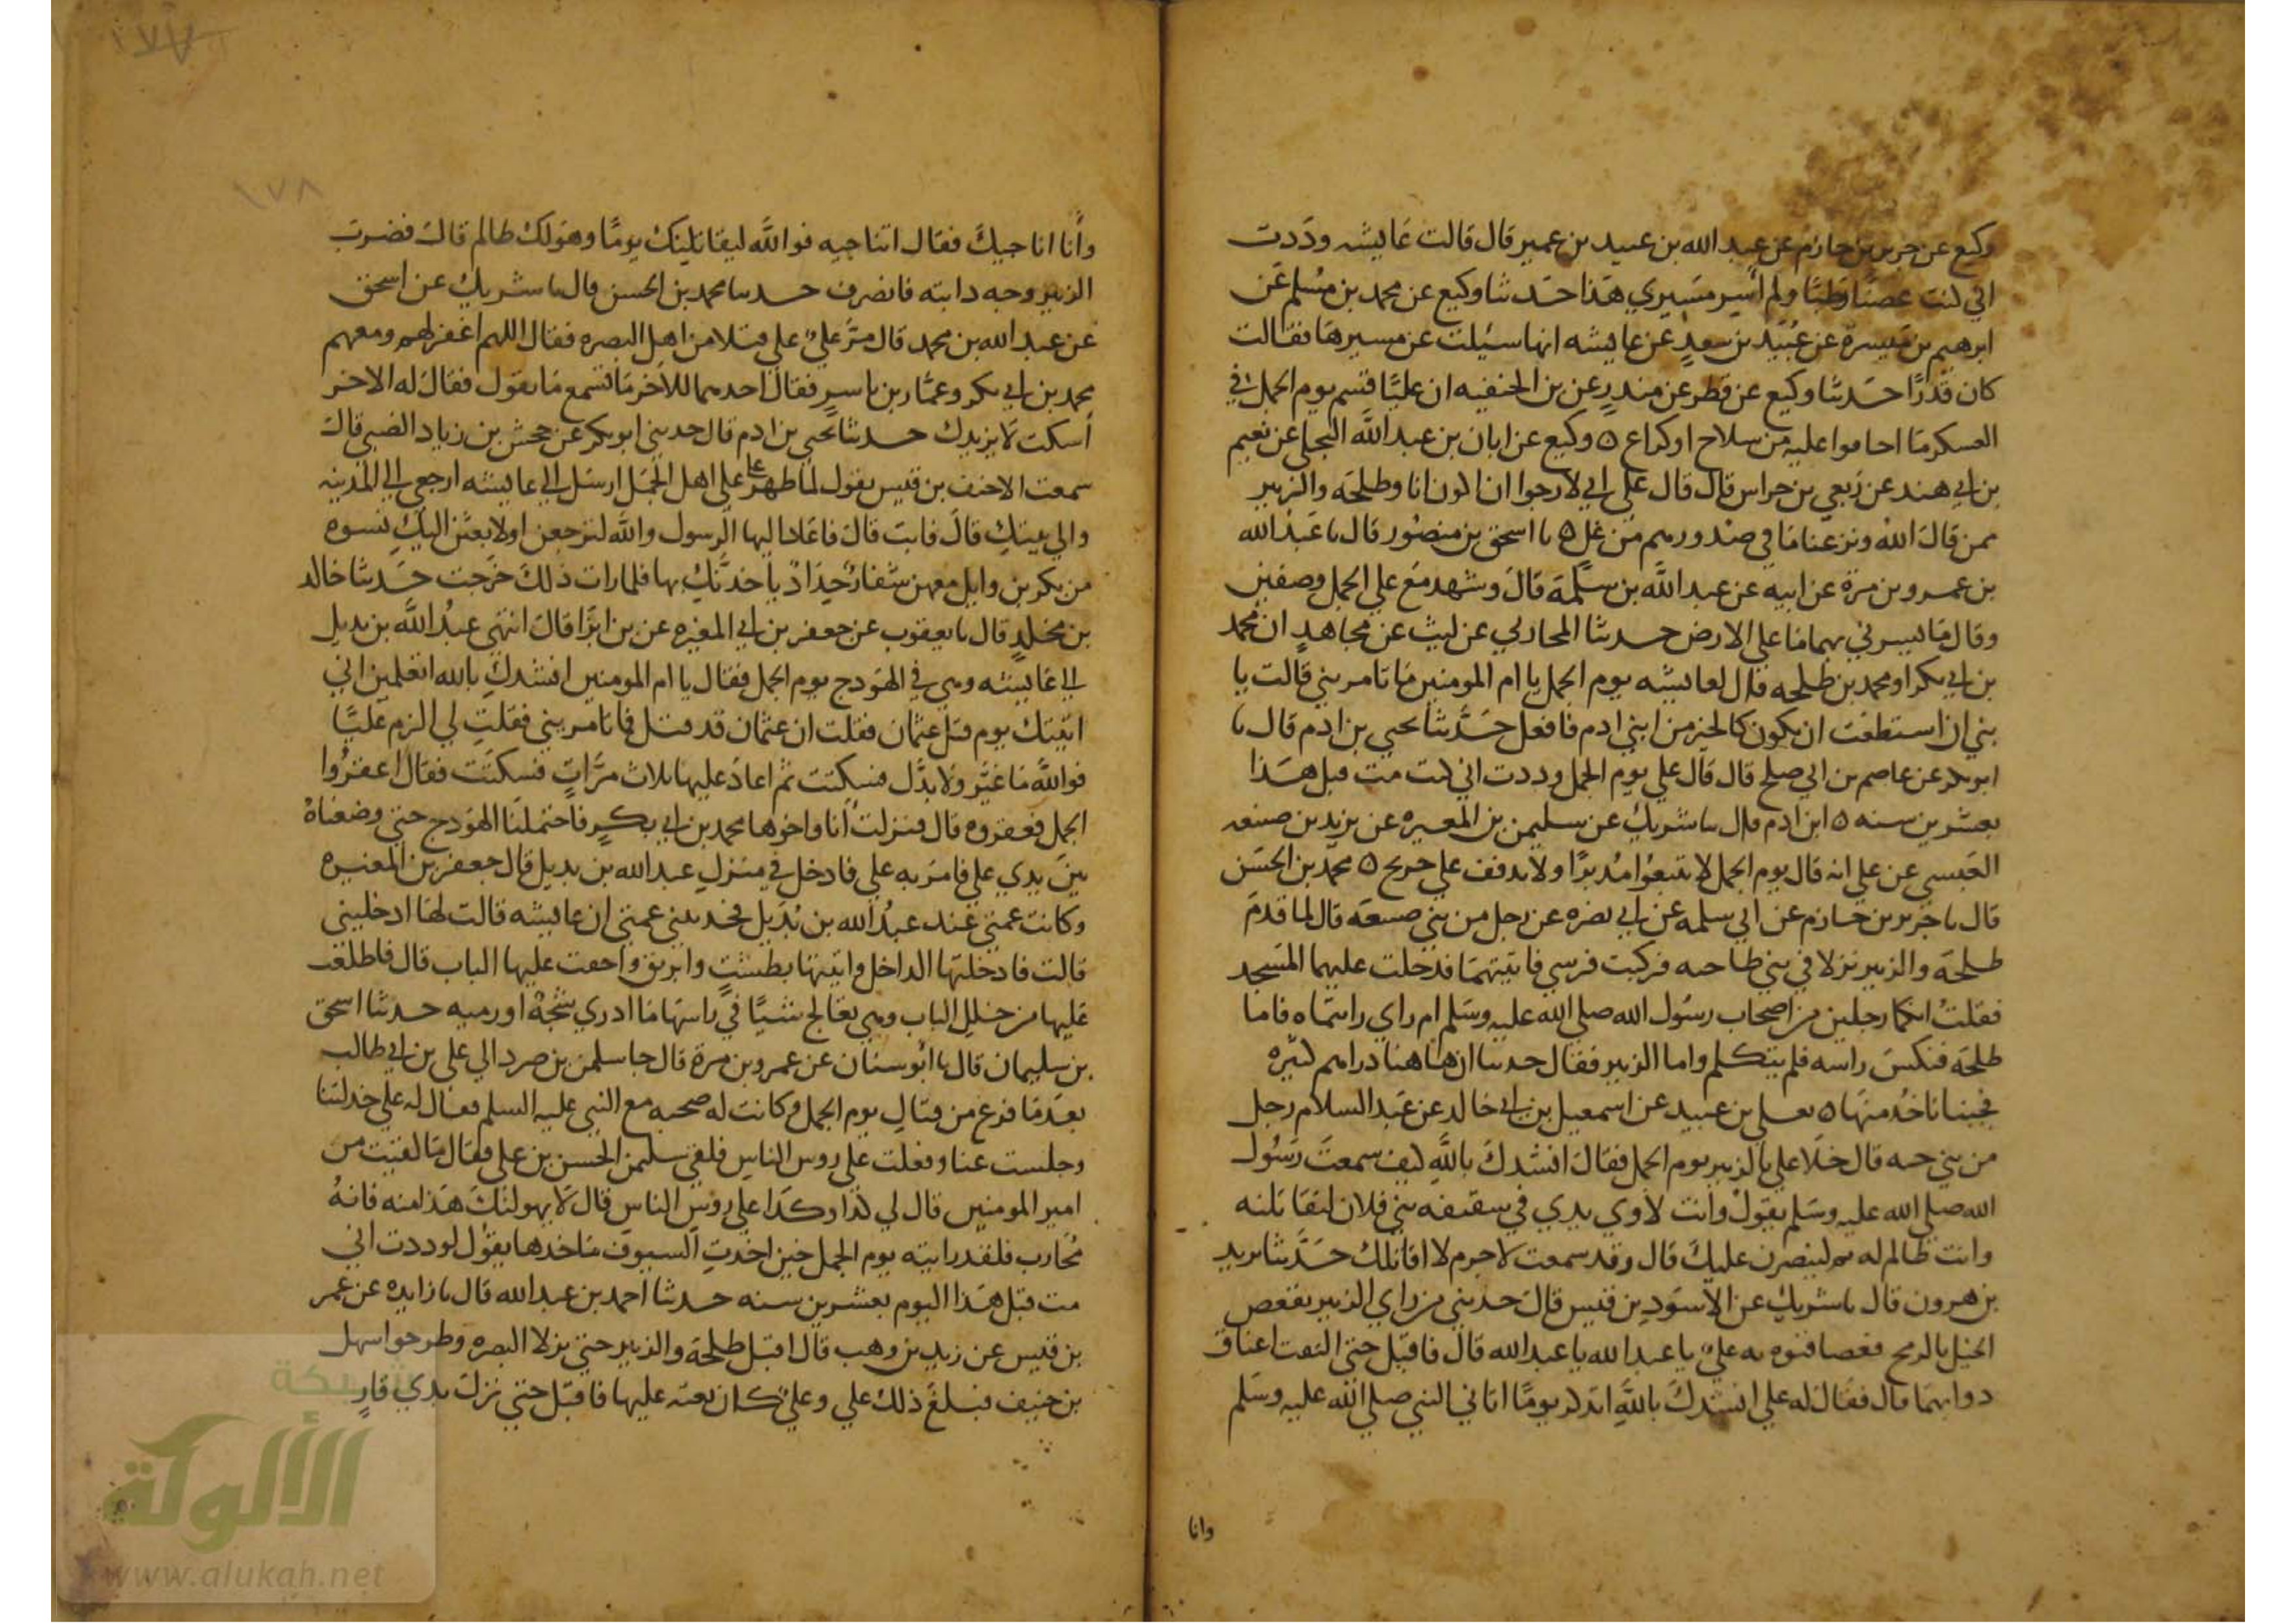 وكيع عن جرير بن حازم عن عبد الله بن عبيد بن عمير قال قالت عايشه وددت
اني كنت غصنا رطبا ولم أسير مسيري هذا حدثنا وكيع عن محمد بن مسلم عن
ابرهيم بن ميسرة عن عبيد بن سعد عن عايشه انها سيلت عن مسيرها فقالت
كان قدرًا حدثنا وكيع عن فطر عن منذر عن بن الحنفيه ان عليًا قسم يوم الجمل في
العسكر ما احافوا عليه من سلاح اوكراع ٥ وكيع عن ابان بن عبد الله البجلي عن نعيم
بن ابي هند عن ربعي بن حراس قال قال علي اني لارجوا ان اكون انا وطلحه والزبير
ممن قال الله ونزعنا ما في صدورهم من غل ٥ نا اسحق بن منصور قال نا عبد الله
بن عمرو بن مرة عن ابيه عن عبد الله بن سلمة قال وشهد مع علي الجمل وصفين
وقال ما يسرني بهما ما على الارض حدثنا المحاربي عن ليث عن مجاهد ان محمد
بن ابي بكر او محمد بن طلحه قال لعايشه يوم الجمل يا ام المومنين ما تامريني قالت يا
بني ان استطعت ان تكون كالخير من ابني ادم فافعل حدثنا يحيى بن ادم قال نا
ابو بكر عن عاصم بن ابي صلح قال قال علي يوم الجمل وددت اني كنت مت قبل هذا
بعشرين سنه ٥ ابن ادم قال نا شريك عن سليمن بن المغيره عن يزيد بن ضبيعه
العبسي عن علي انه قال يوم الجمل لا يتبعوا مدبرًا ولا يدفف علي جريح ٥ محمد بن الحسن
قال نا جرير بن حازم عن ابي سلمه عن ابي نضره عن رجل من بني ضبيعه قال لما قدم
طلحة والزبير نزلا في بني طاحيه فركبت فرسي فاتيتهما فدخلت عليهما المسجد
فقلت انكما رجلين من اصحاب رسول الله صلى الله عليه وسلم ام راي رايتماه فاما
طلحة فنكس راسه فلم يتكلم واما الزبير فقال حدثنا ان هاهنا دراهم كثيره
فجينا ناخذ منها ٥ يعلي بن عبيد عن اسمعيل بن ابي خالد عن عبد السلام رجل
من بني حيه قال خلا علي بالزبير يوم الجمل فقال انشدك بالله كيف سمعت رسول
الله صلى الله عليه وسلم يقول وانت لاوي يدي في سقيفه بني فلان لتقاتلنه
وانت ظالم له ثم لينصرن عليك قال وقد سمعت لاجرم لا اقاتلك حدثنا يزيد
بن هرون قال نا شريك عن الاسود بن قيس قال حدثني من راي الزبير يقعص
الخيل بالرمح قعصا فنوه به علي يا عبد الله يا عبد الله قال فاقبل حتى التقت اعناق
دوابهما قال فقال له علي انشدك بالله اتذكر يومًا اتاني النبي صلى الله عليه وسلم
وانا
١٧٨
وأنا اناجيك فقال اتناجيه فوالله ليقاتلينك يومًا وهو لك ظالم قال فضرب
الزبير وجه دابته فانصرف حدثنا محمد بن الحسن قال نا شريك عن اسحق
عن عبد الله بن محمد قال مر علي علي قتلا من اهل البصره فقال اللهم اغفر لهم ومعهم
محمد بن ابي بكر وعمار بن ياسر فقال احدهما للاخر ما تسمع ما يقول فقال له الاخر
أسكت لا يزيدك حدثنا يحيى بن ادم قال حدثني ابو بكر عن جحش بن زياد الضبي قال
سمعت الاحنف بن قيس يقول لما ظهر علي علي اهل الجمل ارسل الي عايشه ارجعي الي المدينه
والي بيتك قال فابت قال فاعاد اليها الرسول والله لترجعن اولا بعثن اليك نسوه
من بكر بن وايل معهن شفار حداد ياخذنك بها فلما رات ذلك خرجت حدثنا خالد
بن مخلد قال نا يعقوب عن جعفر بن ابي المغيره عن بن ابزا قال انتهى عبد الله بن بديل
الي عايشه وهي في الهودج يوم الجمل فقال يا ام المومنين انشدك بالله اتعلمين اني
اتيتك يوم قتل عثمان فقلت ان عثمان قد قتل فما تامريني فقلت لي الزم عليًا
فوالله ما غير ولا بدل فسكتت ثم اعاد عليها ثلاث مرات فسكتت فقال اعقروا
الجمل فعقروه قال فنزلت أنا واخوها محمد بن ابي بكر فاحتملنا الهودج حتى وضعناه
بين يدي علي فامر به علي فادخل في منزل عبد الله بن بديل قال جعفر بن المغيره
وكانت عمتي عند عبد الله بن بديل فحدثتني عمتي ان عايشه قالت لها ادخليني
قالت فادخلتها الداخل واتيتها بطشت وابريق واجفت عليها الباب قال فاطلعت
عليها من خلل الباب وهي تعالج شيًا في راسها ما ادري شجة او رميه حدثنا اسحق
بن سليمان قال نا ابو سنان عن عمرو بن مرة قال جا سلمن بن صرد الي علي بن ابي طالب
بعد ما فرغ من قتال يوم الجمل وكانت له صحبه مع النبي عليه السلم فقال له علي خذلتنا
وجلست عنا وفعلت علي روس الناس فلقي سليمن الحسن بن علي فقال ما لقيت من
امير المومنين قال لي كذا وكذا علي روس الناس قال لا يهولنك هذا منه فانه
محارب فلقد رايته يوم الجمل حين اخذت السيوف ماخذها يقول لوددت اني
مت قبل هذا اليوم بعشرين سنه حدثنا احمد بن عبد الله قال نا زايده عن عمر
بن قيس عن زيد بن وهب قال اقبل طلحة والزبير حتى نزلا البصره وطرحوا سهل
بن حنيف فبلغ ذلك علي وعلي كان بعثه عليها فاقبل حتى نزل بذي قار
شبكة
الألوكة
www.alukah.net